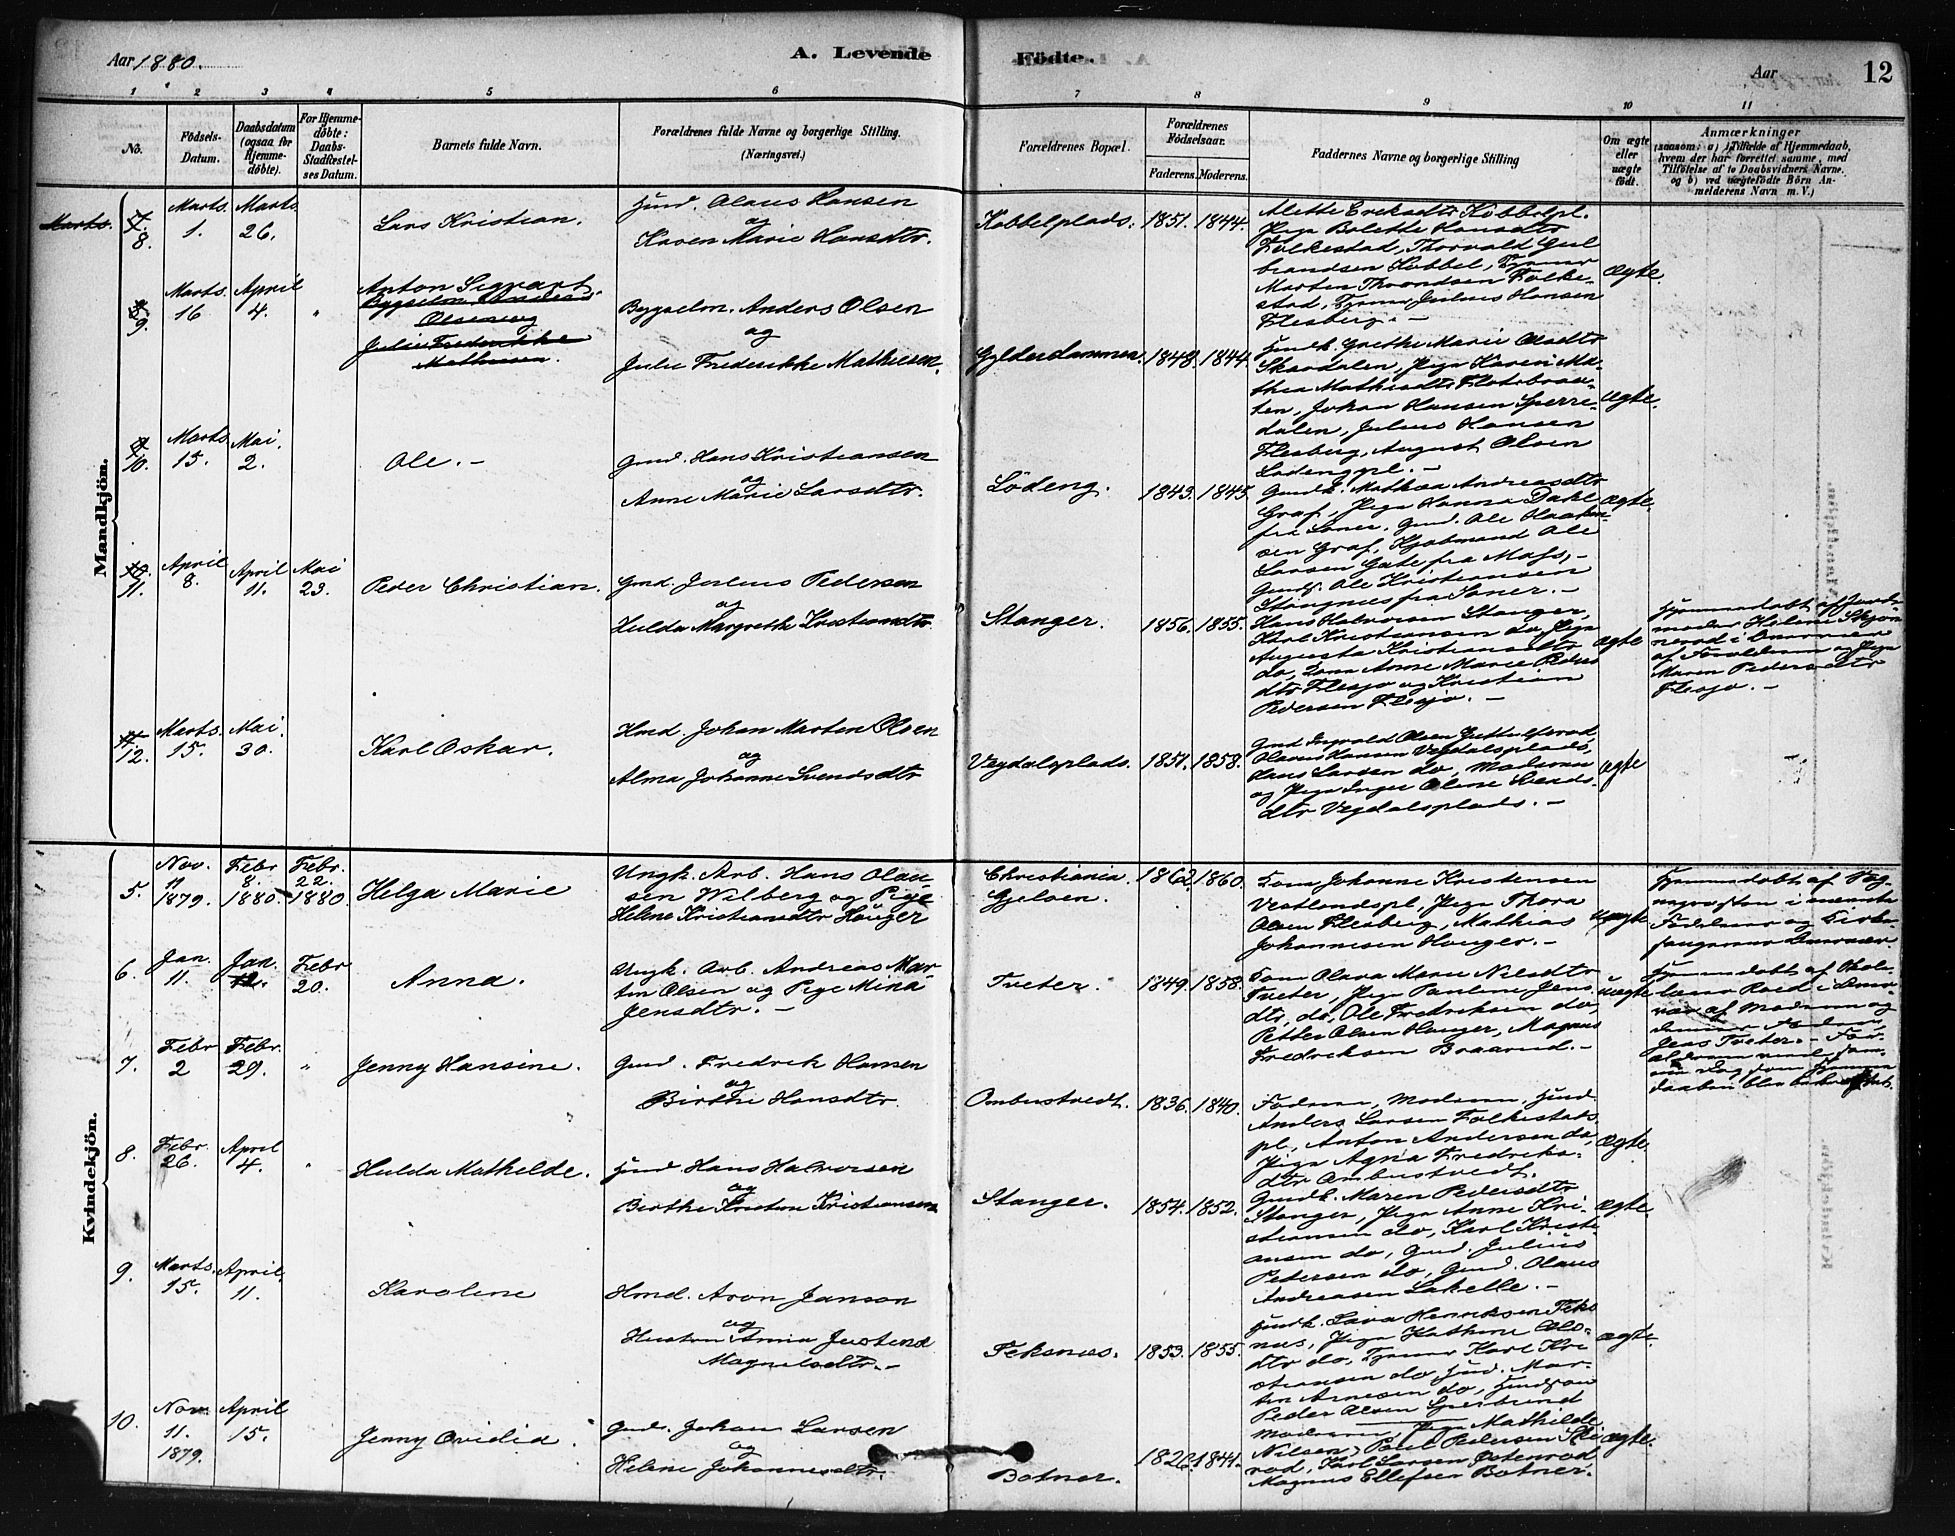 Aar 1880.
A. Levende
Födte.
Aar
12
1 2 3 4 5 6 7 8 9 10 11
No.
Födsels-Datum.
Daabsdatum (ogsaa for Hjemme-döbte).
For Hjemme-döbte: Daabs-Stadfæstel-ses Datum.
Barnets fulde Navn.
Forældrenes fulde Navne og borgerlige Stilling.
(Næringsvei.)
Forældrenes Bopæl.
Forældrenes Födselsaar.
Faderens. Moderens.
Faddernes Navne og borgerlige Stilling
Om ægte eller uægte födt.
Anmærkninger
(saasom: a) i Tilfælde af Hjemmedaab,
hvem der har forrettet samme, med
Tilföielse af to Daabsvidners Navne.
og b) ved uægtefödte Börn An-
melderens Navn m. V.)
Mandkjön.
Marts.
8. Marts. 1. Marts. 26.
Lars Kristian.
Hmd. Olaus Hansen
og
Karen Marie Hansdtr.
Kobbelplads. 1851. 1844.
Alette Eriksdtr Kobbelpl.
Pige Bolette Hansdtr
Folkestad, Thorvald Gul
brandsen Kobbel, Tjener
Marten Throndsen Folke-
stad, Tjener Julius Hansen
Flesberg. -
ægte.
9. Marts. 16 April 4. "
Anton Sigvart
Bygselm. Anders
Olsen og
Julie Frederikke
Mathisen.
Bygselm. Anders Olsen
og
Julie Frederikke Mathisen.
Gylderdammen. 1848. 1844.
Hmdk. Grethe Marie Olsdtr
Skardalen, Pige Karen Ma-
thea Mathisdtr Flatebraa-
ten, Johan Hansen Sperre-
dalen, Julius Hansen
Flesberg, August Olsen
Lodengpl. -
ægte.
10. Marts 15. Mai. 2.
Ole. -
Gmd. Hans Kristiansen
og
Anne Marie Larsdtr.
Lödeng. 1843. 1845.
Gmdk. Mathea Andreasdtr
Graf, Pige Hanna Dahl
fra Soner, Gmd. Ole Haaken-
sen Graf, Kjøbmand Ole
Larsen Gate fra Moss,
Gmds. Ole Kristiansen
Stangnes fra Soner. -
ægte.
11. April 8. April 11. Mai 23.
Peder Christian.
Gmd. Julius Pedersen
og
Hulda Margrethe Kristiansdtr.
Stanger. 1856. 1855.
Hans Halvorsen Stanger,
Karl Kristiansen do, Pige
Augusta Kristiansdtr
do, Kone Anne Marie Peders
dtr Flesjø og Kristian
Pedersen Flesjø. -
ægte
Hjemmedøbt af Jord-
moder Helene Skjøn-
nerød i Nærvær
af Forældrene og Pige
Maren Pedersdtr
Flesjø. -
12. Marts. 15. Mai. 30.
Karl Oskar.
Hmd. Johan Morten Olsen
og
Alma Johanne Svendsdtr
Vegdalsplads. 1851. 1858.
Gmd Ingvald Olsen
Olaves Hansen Vegdalsplads,
Hans Larsen do, Moderen
og Pige Inger Olene Svends-
dtr Vegdalsplads. -
ægte
Kvindekjön.
5. Nov. 11 1879. Febr 8. 1880. Febr. 22. 1880.
Helga Marie
Ungk. Arb. Hans Olau-
sen Wilberg og Pige
Helene Kristiansdtr Hauger
Christiania. 1862. 1860.
Gjelsen.
Kone Johanne Kristensen
Vestlandspl, Pige Thora
Olsen Flesberg, Mathias
Johannesen Hauger. -
uægte
Hjemmedøbt af
i nærvær
6. Jan. 11. Jan. 12. Febr 20.
Anna.
Ungk. Arb. Andreas Mar-
tin Olsen og Pige Mina
Jensdtr. -
Tveter. 1849. 1858.
Kone Olava Marie Nilsdtr
Tveter, Pige Pauline Jens
dtr, do, Ole Fredriksen do,
Petter Olsen Hauger, Magnus
Fredriksen Braarud. -
uægte
Hjemmedøbt af Skole-
lærer Roed i Nær-
vær af Moderen og
dennes Fader,
Jens Tveter. - For-
ældrene
Dag som Hjemme-
daaben blev bekræftet.
7. Febr 2 Febr. 29. "
Jenny Hansine.
Gmd. Fredrik Hansen
og
Birthe Hansdtr.
Ombustvedt. 1836. 1840.
Faderen, Moderen, Hmd
Anders Larsen Folkestads
pl, Anton Andersen do,
Pige Agna Fredriks-
dtr Ombustvedt.
ægte.
8. Febr. 26. April 4. "
Hulda Mathilde.
Hmd Hans Halvorsen
og
Birthe Kristine Kristiansen
Stanger. 1854. 1852.
Gmdk. Maren Pedersdtr
Stanger, Pige Anne Kri-
stiansen do, Karl Kristi-
ansen do, Gmd. Julius
Petersen do, Gmd. Olaus
Andreasen Lakelle. -
ægte.
9. Marts. 15. April. 11.
Karoline
Hmd. Aron Janson
og
Hustru Anna Justine
Magnusdtr. -
Feksnæs. 1853. 1855.
Hmdk. Lava Henriksen Feks
næs, Pige Kathrine Ols-
dtr do, Tjener Karl Kri
stiansen do, Hmd. Mar-
tin Arnesen do,
Peder Olsen
ægte.
10. Nov. 11. 1879. April 15.
Jenny Ovidia.
Gmd. Johan Larsen
og
Helene Johannesdtr.
Botner. 1826. 1841.
Moderen, Pige Mathilde
Nilsen, Paul Pedersen Ski
rød, Karl Larsen Østenrød
Magnus Ellefsen Botner.
ægte.